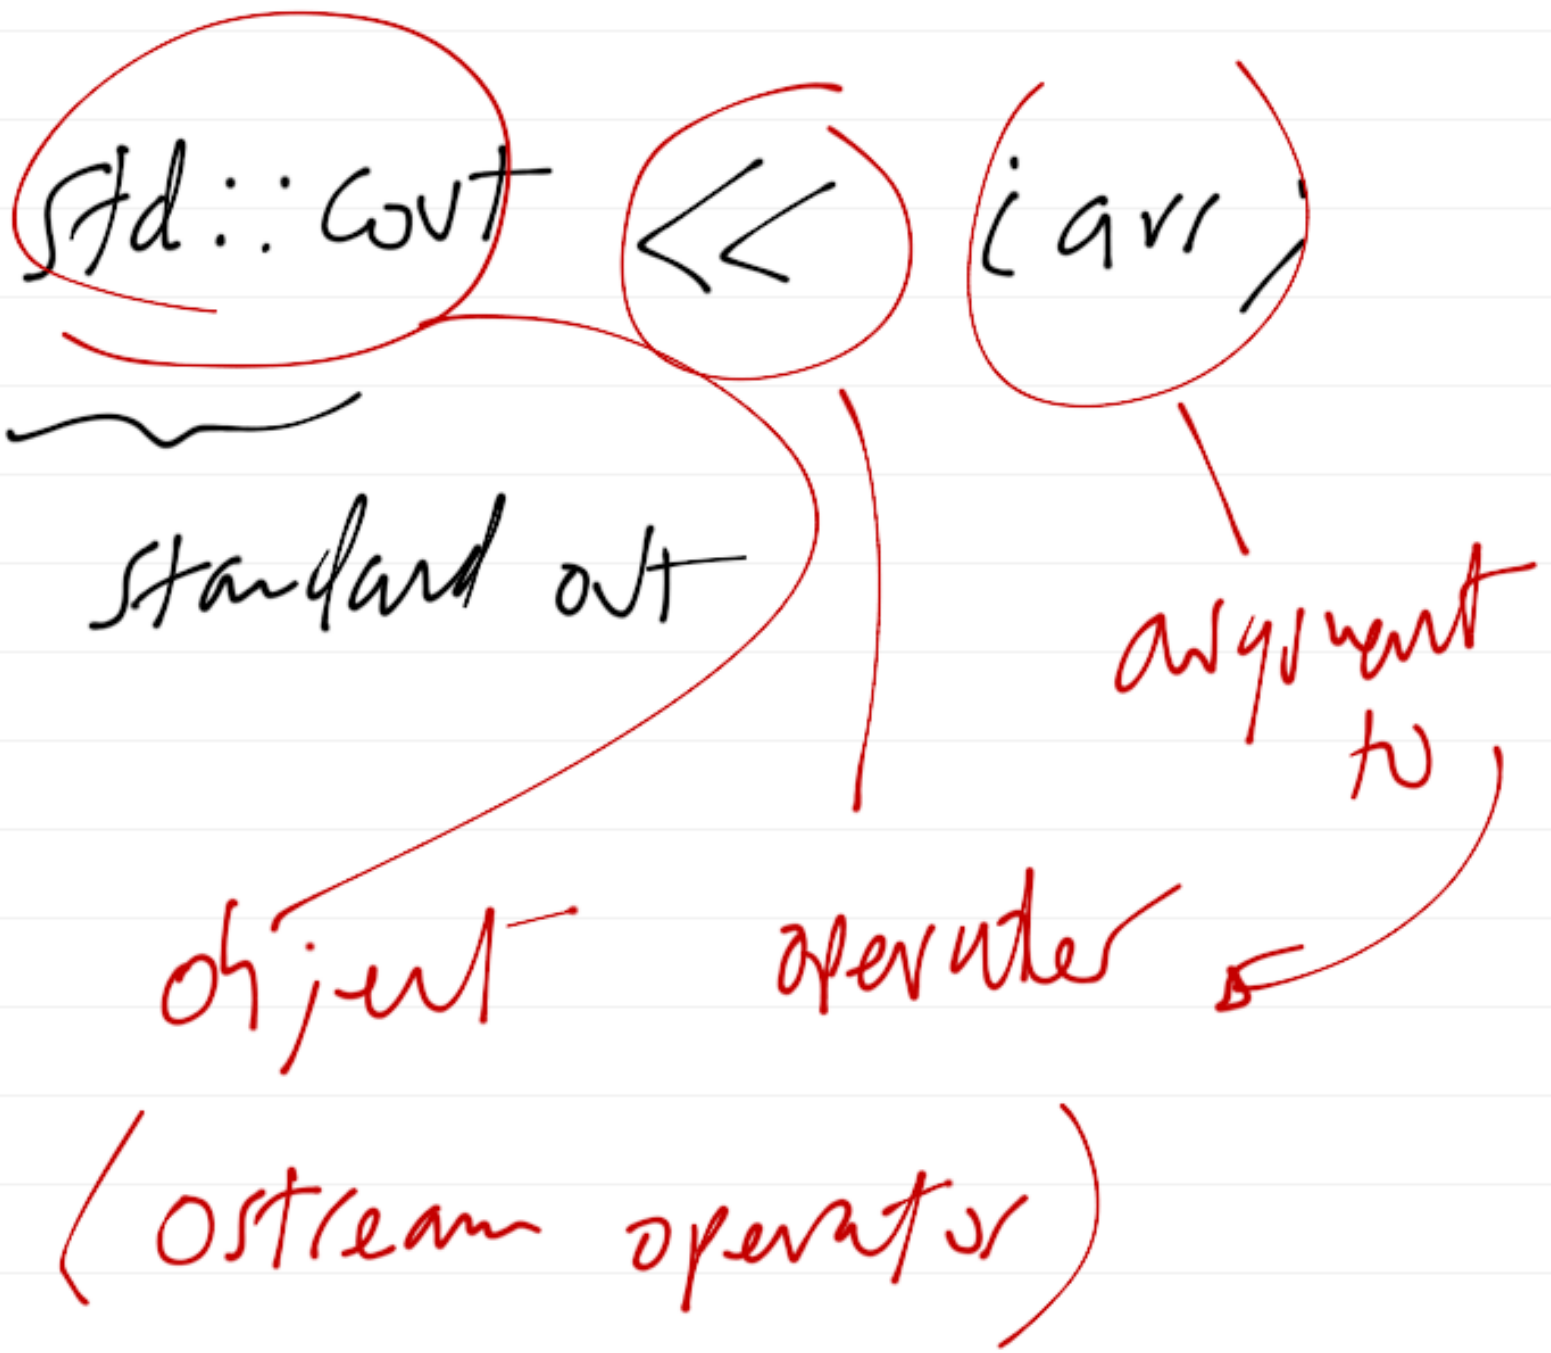 std::cout << iarr;
standard out
argument
to
object operator
(ostream operator)